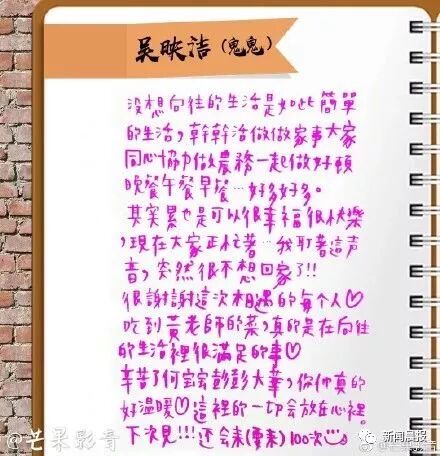 吴映洁(鬼鬼)
没想向往的生活是如此簡單
的生活,幹幹活做做家事大家
同心協力做農務一起做好頓
晚餐午餐早餐…好多好多。
其实累也是可以很幸福很快樂
,現在大家正忙著…我聽著這声
音,突然很不想回家了!!
很謝謝這次相遇的每个人♡
吃到黃老師的菜,真的是在向往
的生活裡很滿足的事♡
辛苦了何宝宝彭彭大華,你们真的
好溫暖♡這裡的一切会放在心裡。
下次見!!!还会來(要來)100次
@芒果影音
新闻晨报